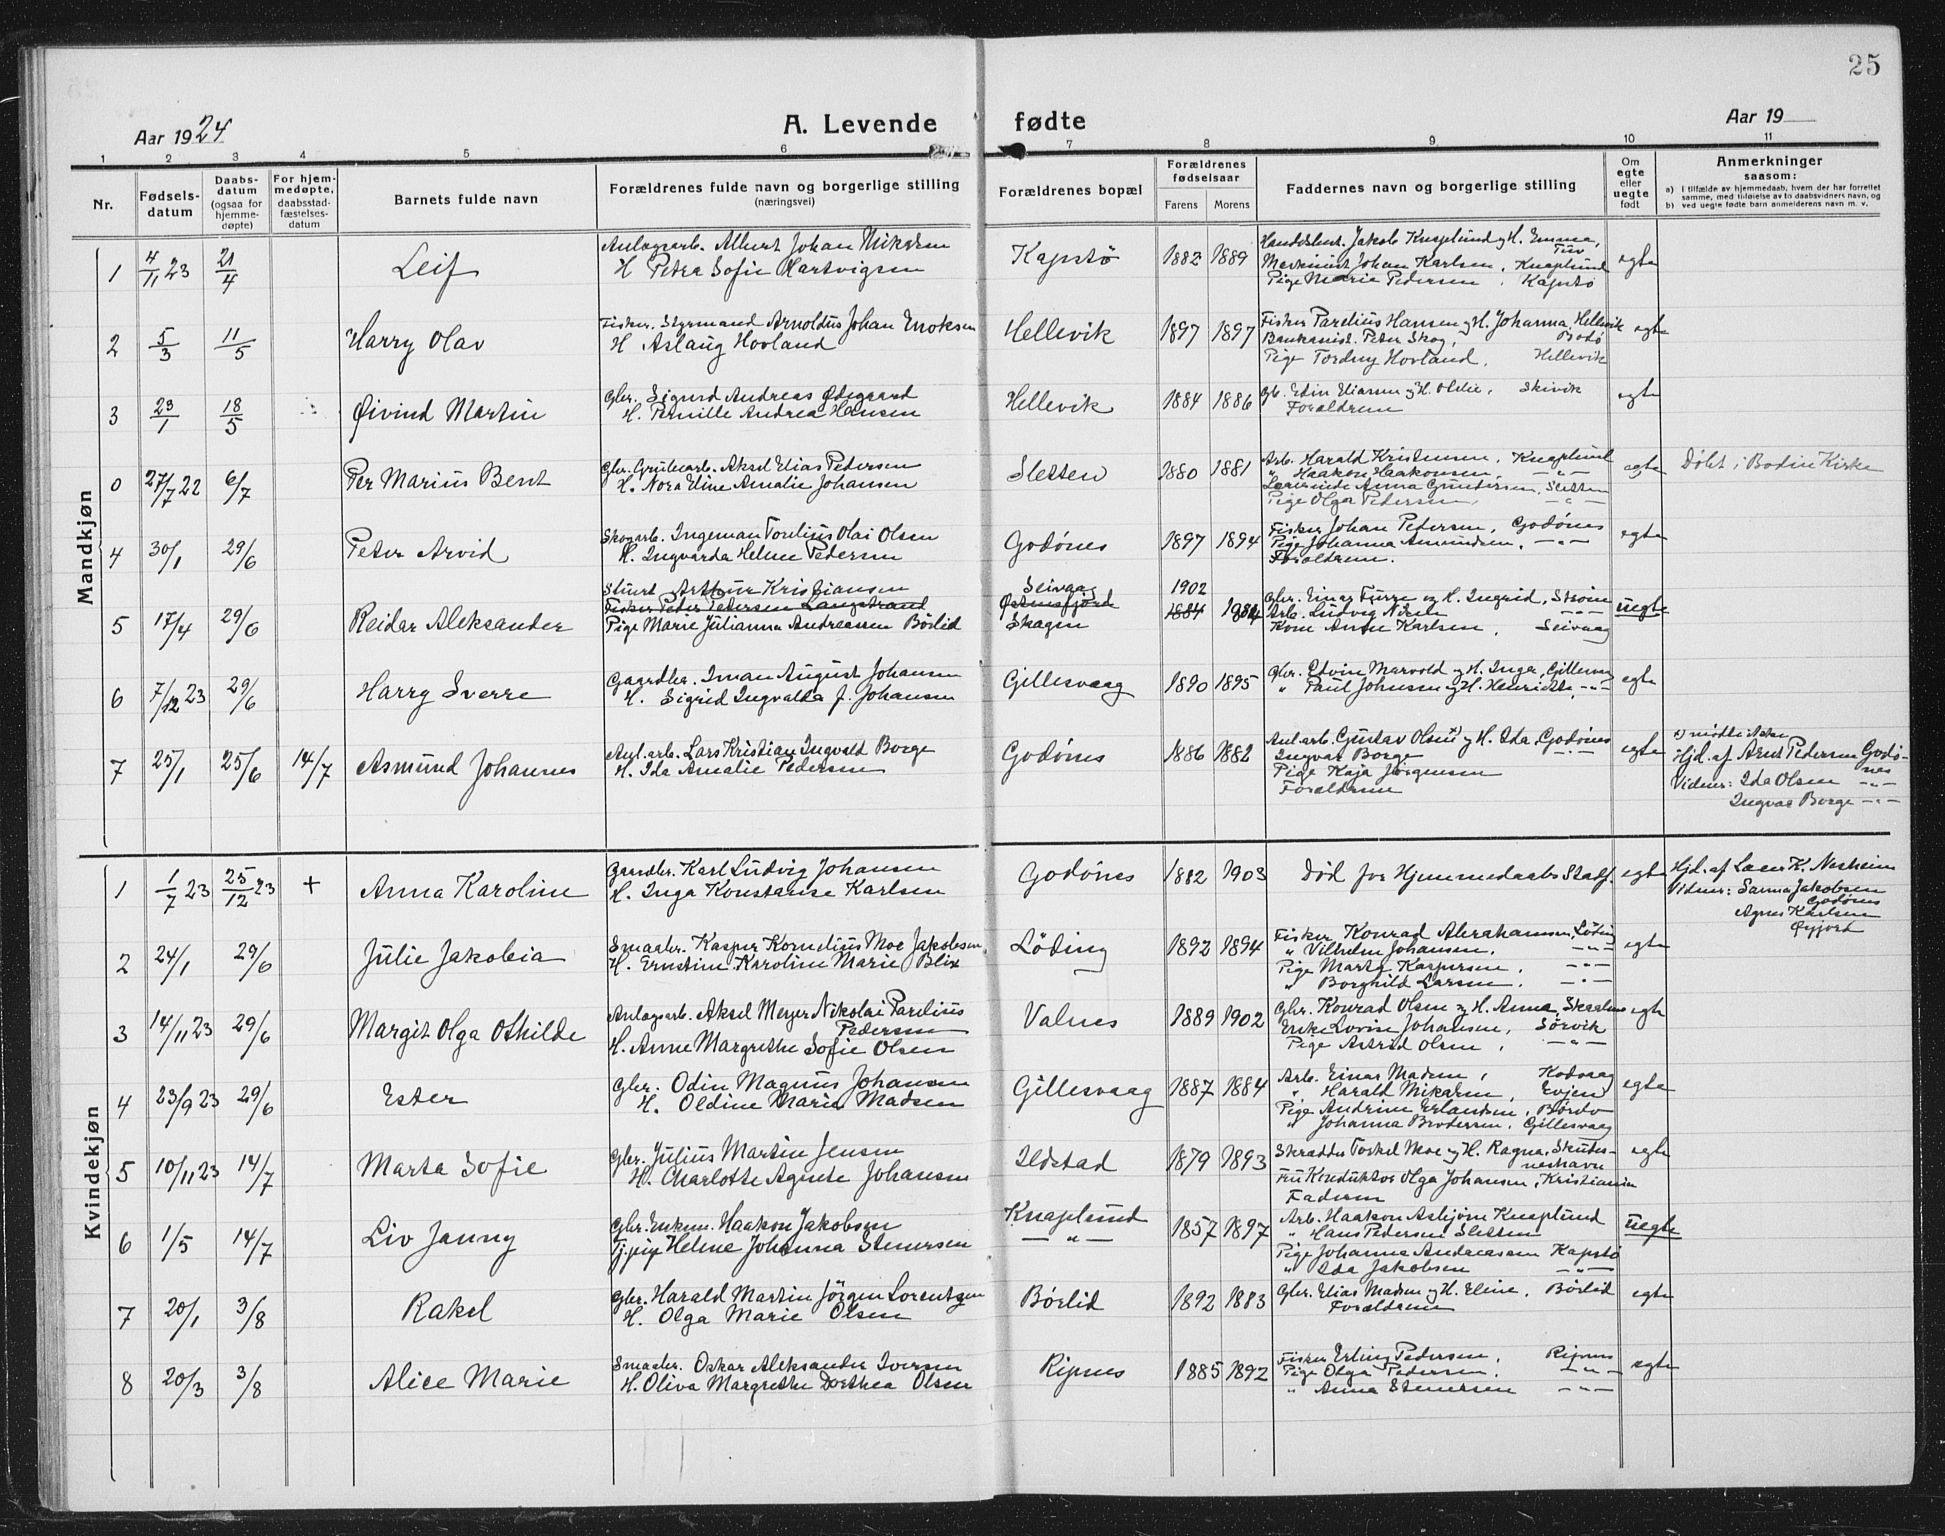 25
Aar 1924
A. Levende fødte
Aar 19
1 2 3 4 5 6 7 8 9 10 11
Nr.
Fødsels-datum
Daabs-datum (ogsaa for hjemme-døpte)
For hjem-medøpte, daabsstad-fæstelses-datum
Barnets fulde navn
Forældrenes fulde navn og borgerlige stilling (næringsvei)
Forældrenes bopæl
Forældrenes fødselsaar
Farens Morens
Faddernes navn og borgerlige stilling
Om egte eller uegte født
Anmerkninger saasom:
a) I tilfælde av hjemmedaab, hvem der har forrettet samme, med tilføielse av to daabsvidners navn, og
b) ved uegte fødte barn anmelderens navn m. v.
Mandkjøn
1 4/11 23 21/4 Leif Anlægsarb. Albert Johan Mikalsen Kapstø 1882 1889 Jakob Knaplund og H. Emma, egte
H Petra Sofie Hartvigsen Maskinist Johan Karlsen, Knaplund
Pige Marie Pedersen, Kapstø
2 5/3 11/5 Harry Olav Fisker. Styrmand Arnoldus Johan Enoksen Hellevik 1897 1897 Fisker Parelius Hansen og H. Johanna, Hellevik egte
H Aslaug Hovland Peter Skog, Bodø
Pige Tordny Hovland, Hellevik
3 23/1 18/5 Øivind Martin Gbr. Sigurd Andreas Ødegaard Hellevik 1884 1886 Gb. Edin Eliasen og H. Skivik egte
H. Pernille Andrea Hansen Forældrene
0 27/7 22 6/7 Per Marius Bent Gbr. Grubearb. Aksel Elias Pedersen Sletten 1880 1881 Arb. Harald Kristensen, Knaplund egte Døbt i Bodin Kirke
H. Nora Eline Amalie Johansen " Haakon Haakonsen, -"-
Lærerinde Anna Gundersen, Sletten
Pige Olga Pedersen, -"-
4 30/1 29/6 Peter Arvid Skogarb. Ingeman Torelius Olai Olsen Godønes 1897 1894 Fisker Johan Pedersen, Godønes egte
H. Ingvarda Helene Pedersen Pige Johanna Amundsen, -"-
Forældrene.
5 17/4 29/6 Reidar Aleksander Stuert Arthur Kristiansen Seivaag 1902 Gbr. Einar Furre og H. Ingrid, Strøm uegte
Fisker Peder Pedersen Langstrand 1884 1904 Arb. Ludvig -"-
Pige Marie Julianna Andreassen Børlid Skagen Kone Anne Karlsen, Seivaag
6 7/12 23 29/6 Harry Sverre Gaardbr. Iman August Johansen Gillesvaag 1890 1895 Gbr. Edvin Marvold og H. Inga, Gillesvaag egte
H. Sigrid Ingvalda J. Johansen " Paul Johnsen og H. Henriette, -"-
7 25/1 25/6 14/7 Asmund Johannes Anl.arb. Lars Kristian Ingvald Borge Godønes 1886 1882 Anl.arb. Gustav Olsen og H. Ida, Godønes egte
H. Ida Amalie Pedersen Ingvar Borge -"- Hjd. af Arnt Pedersen Godø-nes
Pige Kaja Jørgensen Vidner: Ida Olsen -"-
Forældrene Ingvar Borge -"-
Kvindekjøn
1 1/7 23 25/12 23 + Anna Karoline Gaardbr. Karl Ludvig Johansen Godønes 1882 1903 Død før Hjemmedaabs Stadf. egte Hjd. af Lærer K. Nesheim
H. Inga Konstanse Karlsen Vidner: Sanna Jakobsen Godønes
Agnes Karlsen Øyjord
2 24/1 29/6 Julie Jakobia Smaabr. Kasper Kornelius Moe Jakobsen Løding 1892 1894 Fisker Konrad Abrahamsen, Løding egte
H. Ernstine Karoline Marie Blix " Vilhelm Johansen, -"-
Pige Marta Kaspersen, -"-
" Borghild Larsen, -"-
3 14/11 23 29/6 Margit Olga Othilde Anlægsarb. Aksel Meyer Nikolai Parelius Pedersen Valnes 1889 1902 Gbr. Konrad Olsen og H. Anna, egte
H. Anne Margrethe Sofie Olsen Enke Lovise Johansen, Sørvik
Pige Astrid Olsen, -"-
4 23/9 23 29/6 Ester Gbr. Odin Magnus Johansen Gillesvaag 1887 1884 Arb. Einar Madsen, Kodvaag egte
H. Oldine Maria Madsen " Harald Mikalsen, Evjen
Pige Andrine Erlandsen, Børdø
" Johanna Brodersen, Gillesvaag
5 10/11 23 14/7 Marta Sofie Gbr. Julius Martin Jensen Ildstad 1879 1893 Skrædder Torkel Moe og H. Ragna, Skudes-neshavn egte
H. Charlotte Agnete Johansen Fru Konduktør Olga Johansen, Kristiania
Faderen
6 1/5 14/7 Liv Janny Gbr. Enkem. Haakon Jakobsen Knaplund 1857 1897 Arb. Haakon Asbjørn Knaplund uegte
Tjpig Helene Johanna Stenersen -"- " Hans Pedersen Sletten
Pige Johanna Andreassen Kapstø
" Ida Jakobsen -"-
7 20/1 3/8 Rakel Gbr. Harald Martin Jørgen Lorentzen Børlid 1892 1883 Gbr. Elias Madsen og H. Eline, Børlid egte
H. Olga Marie Olsen Forældrene
8 20/3 3/8 Alice Marie Smaabr. Oskar Aleksander Iversen Ripnes 1885 1892 Fisker Erling Pedersen, Ripnes egte
H. Oliva Margrethe Dorthea Olsen Pige Olga Pedersen, -"-
" Anna Stenersen -"-